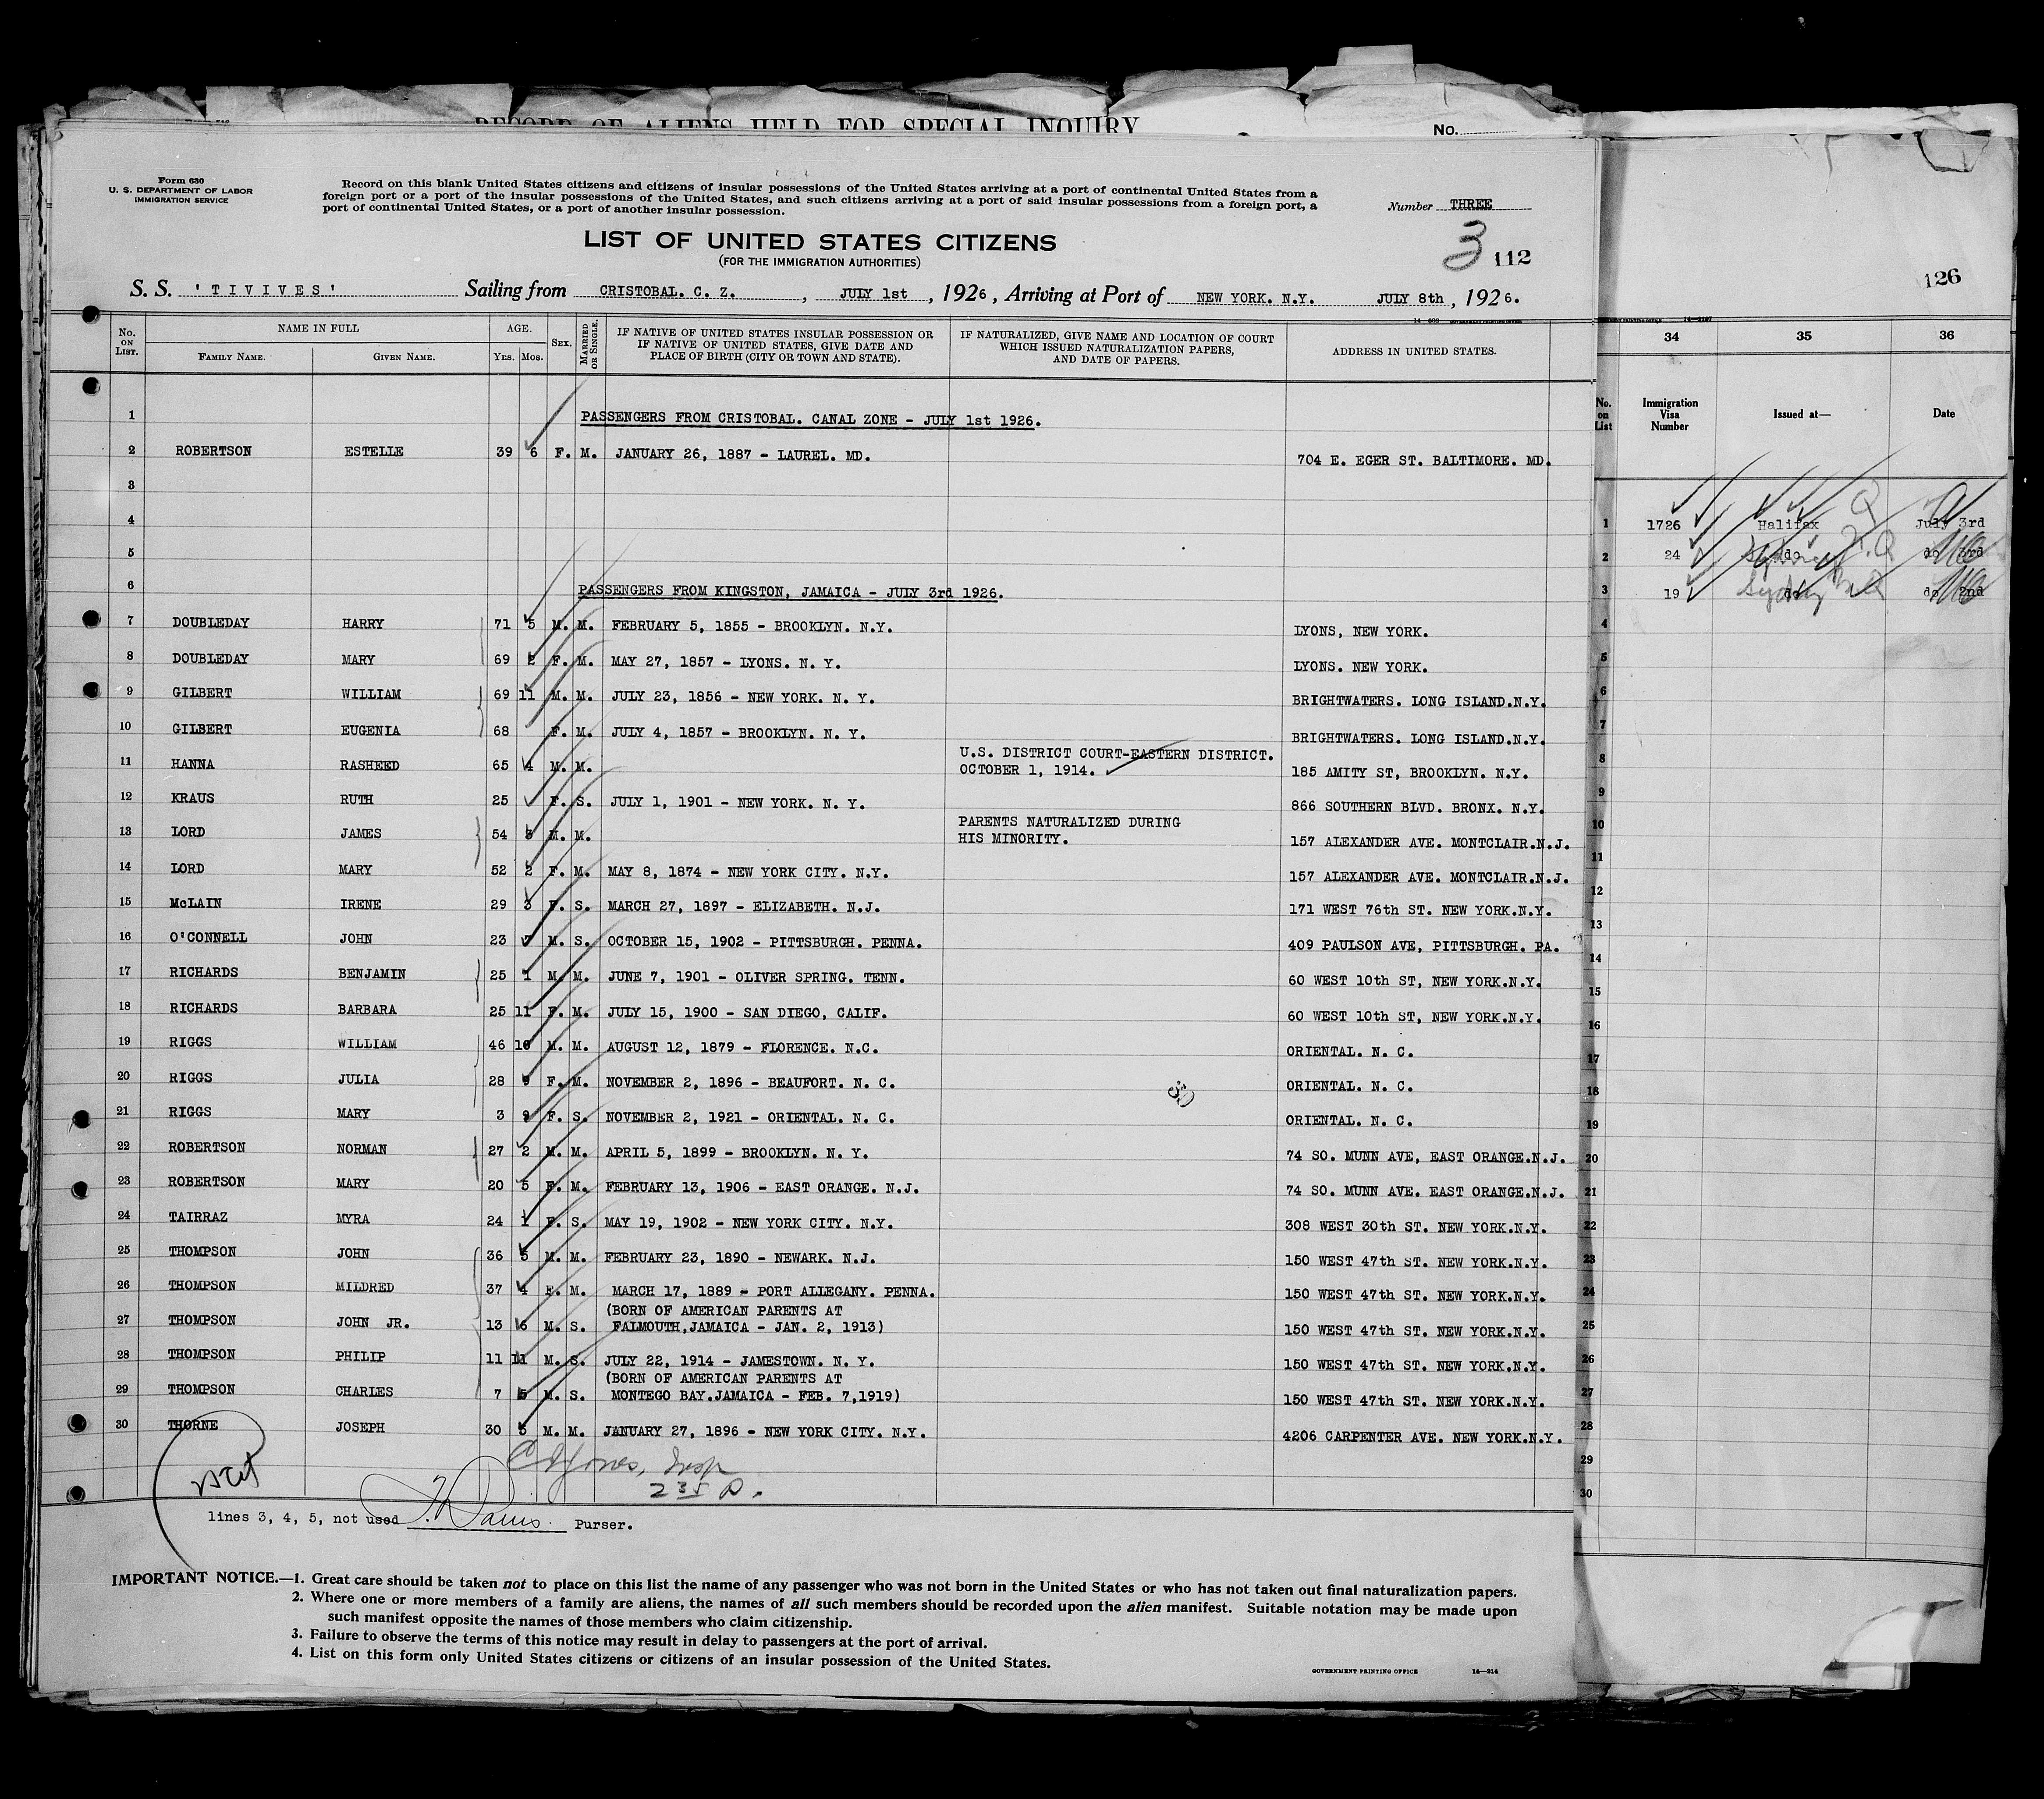 RECORD OF ALIENS HELD FOR SPECIAL INQUIRY
No.
Form 630
U. S. DEPARTMENT OF LABOR
IMMIGRATION SERVICE
Record on this blank United States citizens and citizens of insular possessions of the United States arriving at a port of continental United States from a
foreign port or a port of the insular possessions of the United States, and such citizens arriving at a port of said insular possessions from a foreign port, a
port of continental United States, or a port of another insular possession.
Number THREE
LIST OF UNITED STATES CITIZENS
(FOR THE IMMIGRATION AUTHORITIES)
3 112
S. S. 'TIVIVES' Sailing from CRISTOBAL. C. Z. , JULY 1st , 1926, Arriving at Port of NEW YORK. N.Y. JULY 8th , 1926.
No. ON LIST. NAME IN FULL AGE. SEX. MARRIED OR SINGLE. IF NATIVE OF UNITED STATES INSULAR POSSESSION OR IF NATIVE OF UNITED STATES, GIVE DATE AND PLACE OF BIRTH (CITY OR TOWN AND STATE). IF NATURALIZED, GIVE NAME AND LOCATION OF COURT WHICH ISSUED NATURALIZATION PAPERS, AND DATE OF PAPERS. ADDRESS IN UNITED STATES.
FAMILY NAME. GIVEN NAME. YRS. MOS.
1 PASSENGERS FROM CRISTOBAL. CANAL ZONE - JULY 1st 1926.
2 ROBERTSON ESTELLE 39 6 F. M. JANUARY 26, 1887 - LAUREL. MD. 704 E. EGER ST. BALTIMORE. MD.
3
4
5
6 PASSENGERS FROM KINGSTON, JAMAICA - JULY 3rd 1926.
7 DOUBLEDAY HARRY 71 5 M. M. FEBRUARY 5, 1855 - BROOKLYN. N.Y. LYONS, NEW YORK.
8 DOUBLEDAY MARY 69 2 F. M. MAY 27, 1857 - LYONS. N. Y. LYONS. NEW YORK.
9 GILBERT WILLIAM 69 11 M. M. JULY 23, 1856 - NEW YORK. N. Y. BRIGHTWATERS. LONG ISLAND.N.Y.
10 GILBERT EUGENIA 68 F. M. JULY 4, 1857 - BROOKLYN. N. Y. BRIGHTWATERS. LONG ISLAND.N.Y.
11 HANNA RASHEED 65 4 M. M. U.S. DISTRICT COURT-EASTERN DISTRICT. OCTOBER 1, 1914. 185 AMITY ST, BROOKLYN. N.Y.
12 KRAUS RUTH 25 F. S. JULY 1, 1901 - NEW YORK. N. Y. 866 SOUTHERN BLVD. BRONX. N.Y.
13 LORD JAMES 54 3 M. M. PARENTS NATURALIZED DURING HIS MINORITY. 157 ALEXANDER AVE. MONTCLAIR.N.J.
14 LORD MARY 52 2 F. M. MAY 8, 1874 - NEW YORK CITY. N.Y. 157 ALEXANDER AVE. MONTCLAIR.N.J.
15 McLAIN IRENE 29 3 F. S. MARCH 27, 1897 - ELIZABETH. N.J. 171 WEST 76th ST. NEW YORK.N.Y.
16 O'CONNELL JOHN 23 7 M. S. OCTOBER 15, 1902 - PITTSBURGH. PENNA. 409 PAULSON AVE, PITTSBURGH. PA.
17 RICHARDS BENJAMIN 25 1 M. M. JUNE 7, 1901 - OLIVER SPRING. TENN. 60 WEST 10th ST, NEW YORK.N.Y.
18 RICHARDS BARBARA 25 11 F. M. JULY 15, 1900 - SAN DIEGO, CALIF. 60 WEST 10th ST, NEW YORK.N.Y.
19 RIGGS WILLIAM 46 10 M. M. AUGUST 12, 1879 - FLORENCE. N.C. ORIENTAL. N. C.
20 RIGGS JULIA 28 9 F. M. NOVEMBER 2, 1896 - BEAUFORT. N. C. ORIENTAL. N. C.
21 RIGGS MARY 3 9 F. S. NOVEMBER 2, 1921 - ORIENTAL. N. C. ORIENTAL. N. C.
22 ROBERTSON NORMAN 27 2 M. M. APRIL 5, 1899 - BROOKLYN. N. Y. 74 SO. MUNN AVE, EAST ORANGE.N.J.
23 ROBERTSON MARY 20 5 F. M. FEBRUARY 13, 1906 - EAST ORANGE. N.J. 74 SO. MUNN AVE. EAST ORANGE.N.J.
24 TAIRRAZ MYRA 24 1 F. S. MAY 19, 1902 - NEW YORK CITY. N.Y. 308 WEST 30th ST. NEW YORK.N.Y.
25 THOMPSON JOHN 36 5 M. M. FEBRUARY 23, 1890 - NEWARK. N.J. 150 WEST 47th ST. NEW YORK.N.Y.
26 THOMPSON MILDRED 37 4 F. M. MARCH 17, 1889 - PORT ALLEGANY. PENNA. 150 WEST 47th ST. NEW YORK.N.Y.
27 THOMPSON JOHN JR. 13 6 M. S. (BORN OF AMERICAN PARENTS AT FALMOUTH,JAMAICA - JAN. 2, 1913) 150 WEST 47th ST. NEW YORK.N.Y.
28 THOMPSON PHILIP 11 11 M. S. JULY 22, 1914 - JAMESTOWN. N. Y. 150 WEST 47th ST. NEW YORK.N.Y.
29 THOMPSON CHARLES 7 5 M. S. (BORN OF AMERICAN PARENTS AT MONTEGO BAY.JAMAICA - FEB. 7,1919) 150 WEST 47th ST. NEW YORK.N.Y.
30 THORNE JOSEPH 30 5 M. M. JANUARY 27, 1896 - NEW YORK CITY. N.Y. 4206 CARPENTER AVE. NEW YORK.N.Y.
lines 3, 4, 5, not used Purser.
IMPORTANT NOTICE.—1. Great care should be taken not to place on this list the name of any passenger who was not born in the United States or who has not taken out final naturalization papers.
2. Where one or more members of a family are aliens, the names of all such members should be recorded upon the alien manifest. Suitable notation may be made upon
such manifest opposite the names of those members who claim citizenship.
3. Failure to observe the terms of this notice may result in delay to passengers at the port of arrival.
4. List on this form only United States citizens or citizens of an insular possession of the United States.
GOVERNMENT PRINTING OFFICE 14—214
126
34 35 36
No. on List Immigration Visa Number Issued at— Date
1 1726 Halifax July 3rd
2 24 do do 3rd
3 19 Sydney do do 2nd
4
5
6
7
8
9
10
11
12
13
14
15
16
17
18
19
20
21
22
23
24
25
26
27
28
29
30